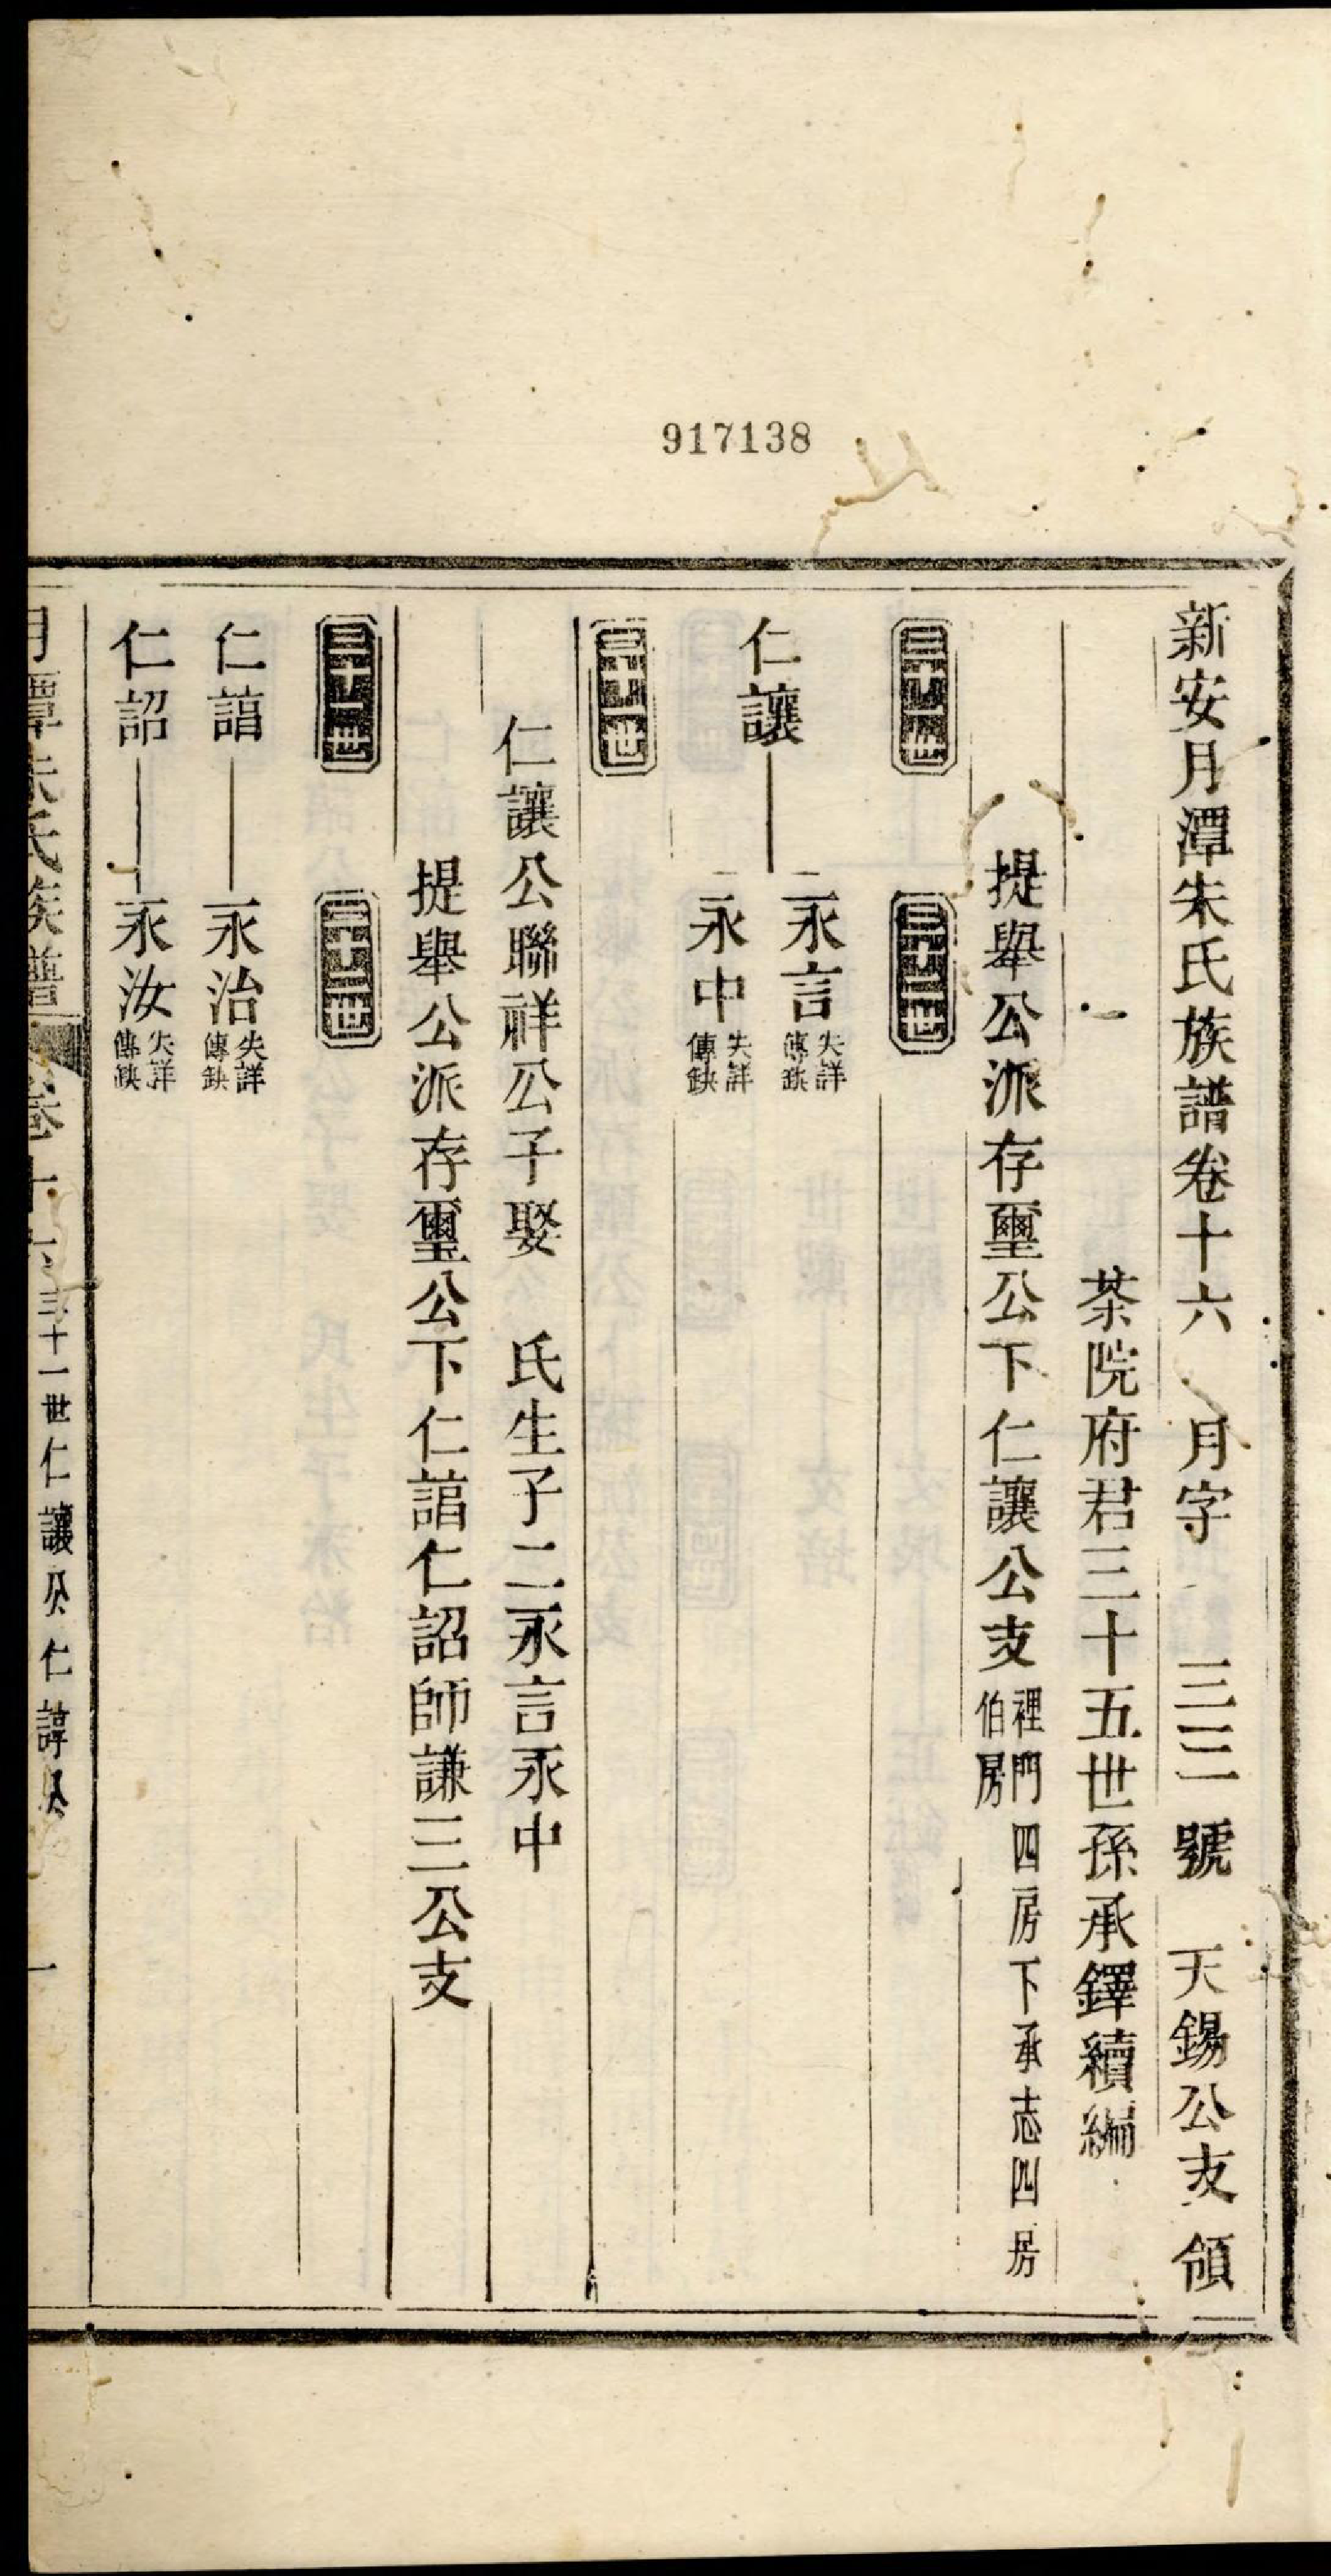 917138
新安月潭朱氏族譜卷十六 月字 三二 號 天錫公支 領
茶院府君三十五世孫承鐸續編
提舉公派存璽公下仁讓公支 裡門四房下承志四房 伯房
三十一世 三十二世
仁讓 永言 失詳 傳缺
永中 失詳 傳缺
三十一世
仁讓公聯祥公子娶 氏生子二永言永中
提舉公派存璽公下仁䛩仁詔師謙三公支
三十一世 三十二世
仁䛩 永治 失詳 傳缺
仁詔 永汝 失詳 傳缺
月潭朱氏族譜 卷十六 三十一世仁讓公仁諄公 一